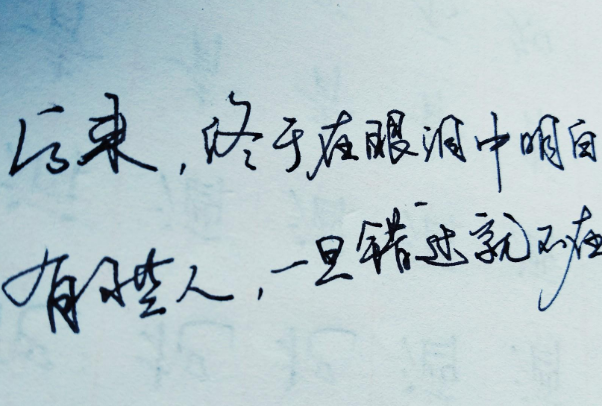 后来，终于在眼泪中明白
有些人，一旦错过就不在